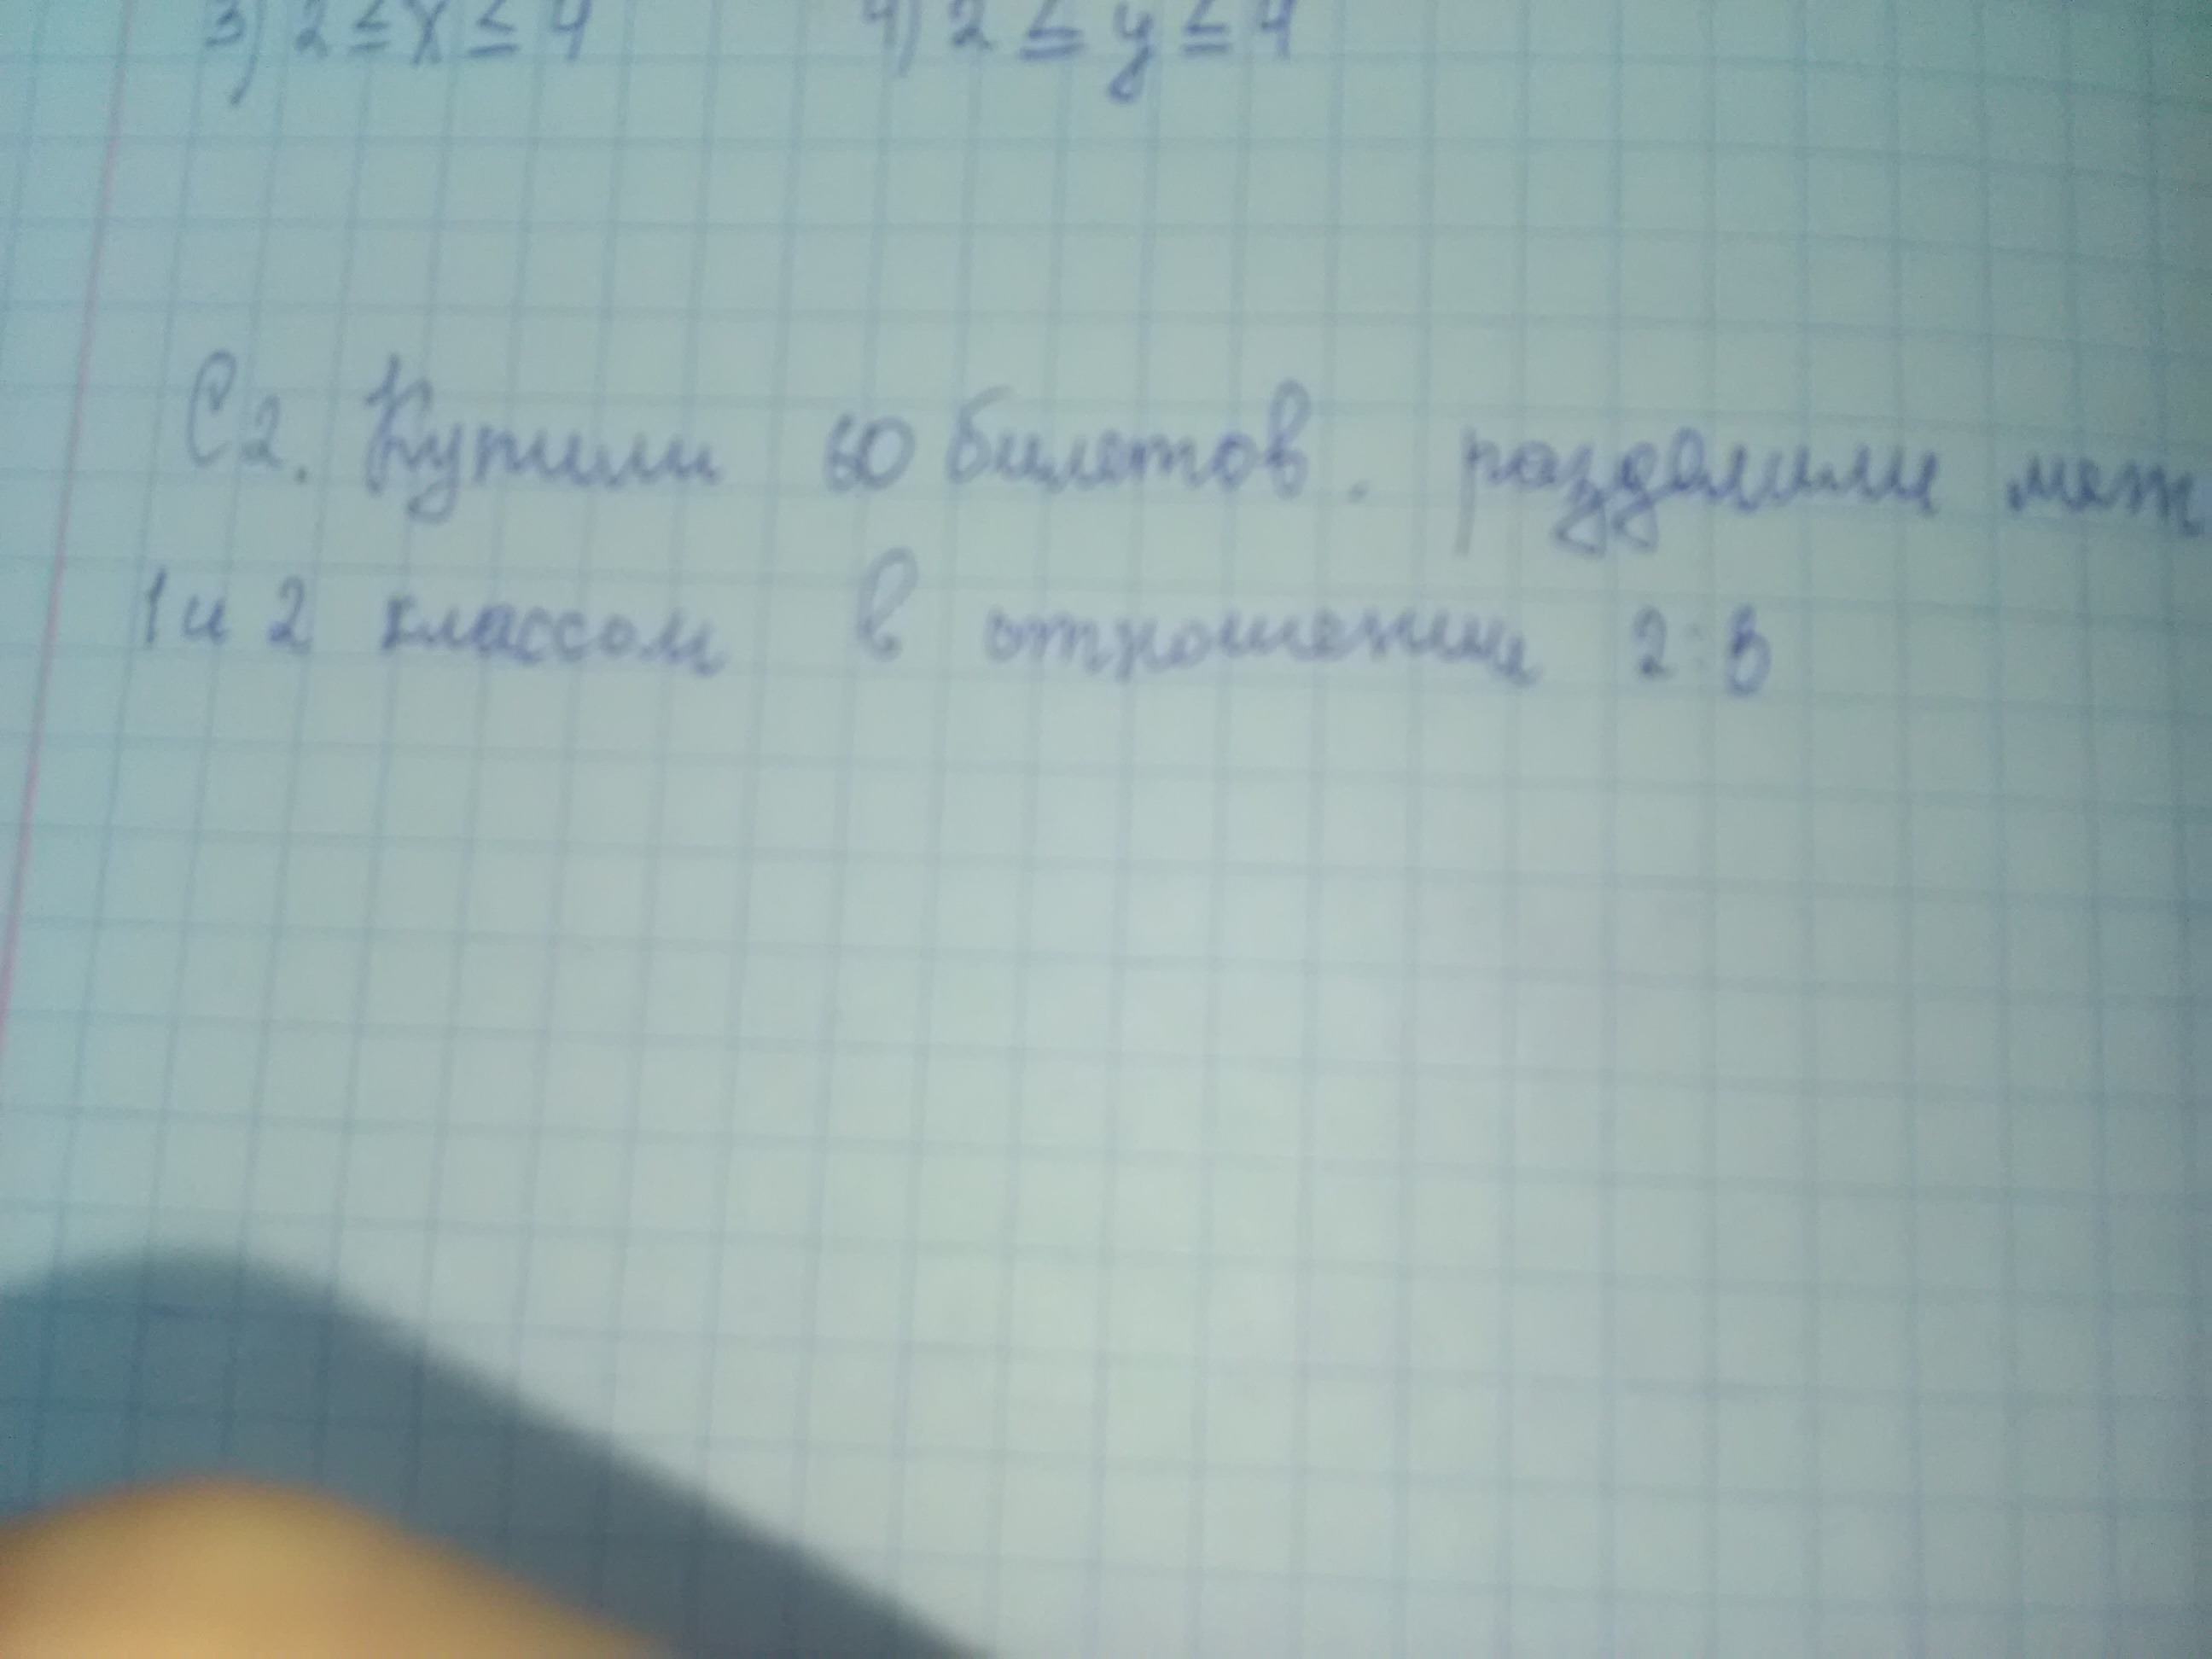 3) 2 ≤ x ≤ 4 4) 2 ≤ y ≤ 4
С2. Купили 60 билетов. разделили меж
1 и 2 классом в отношении 2:3